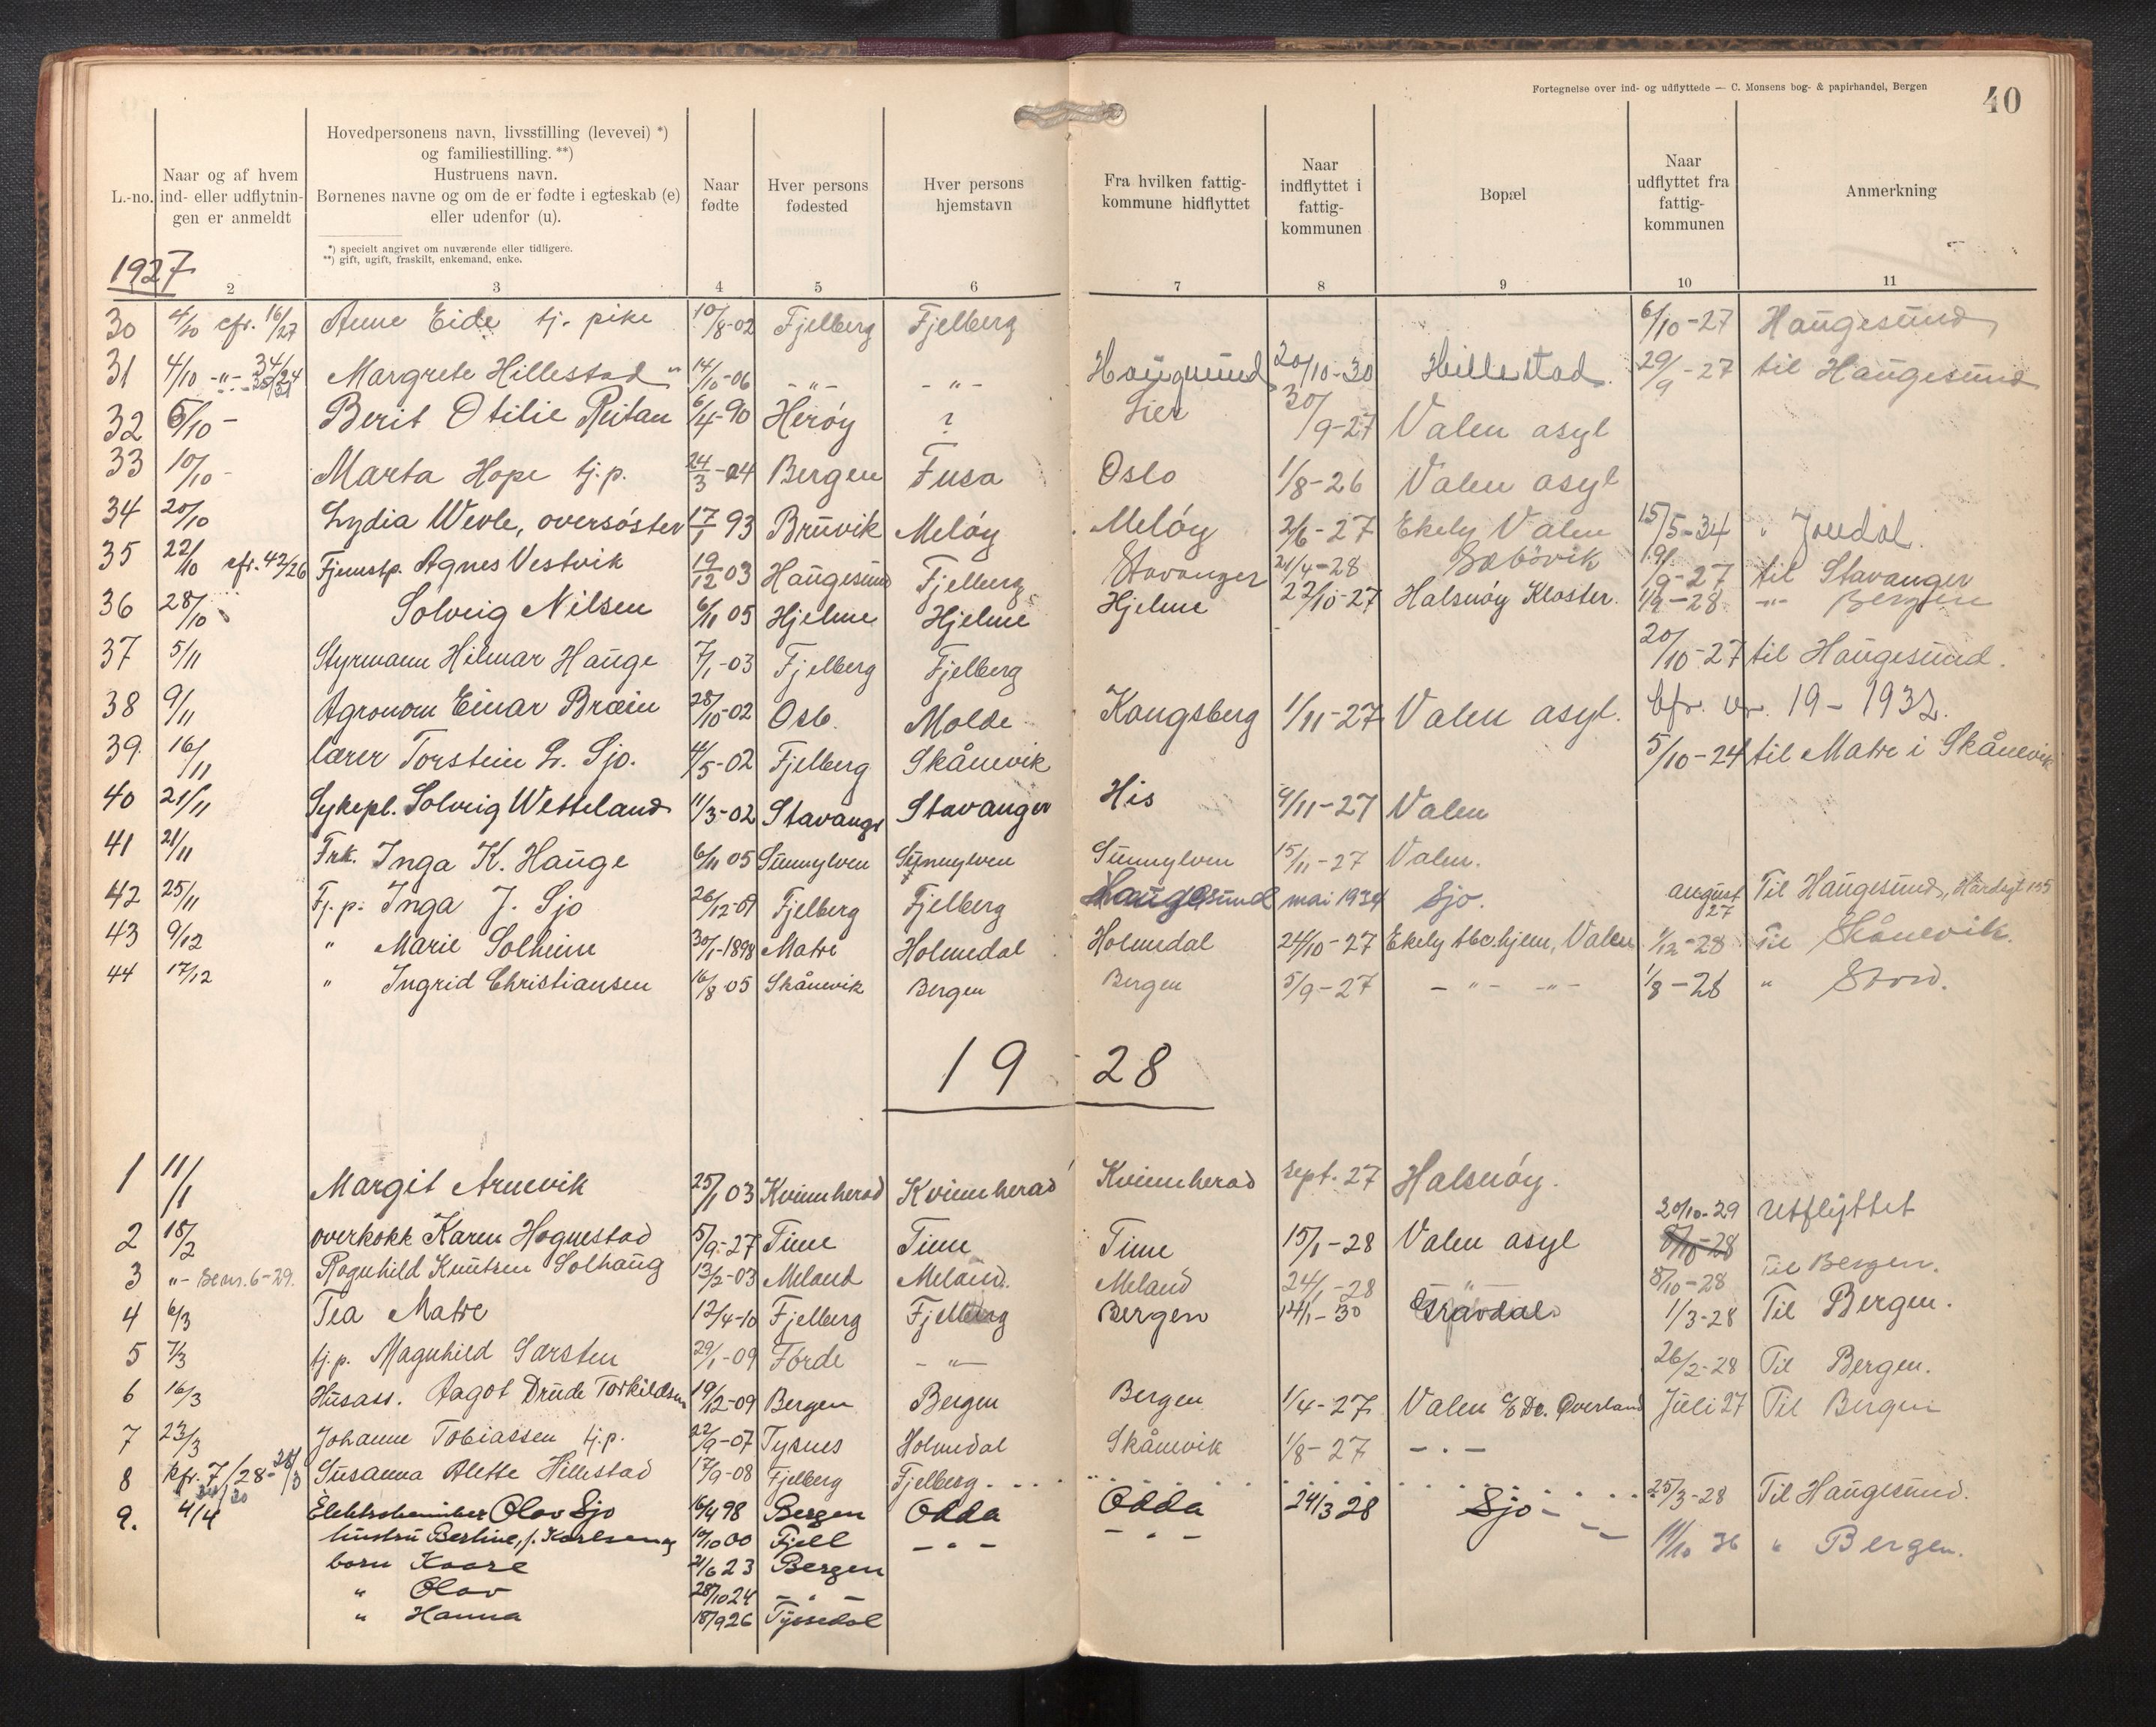 Fortegnelse over ind- og udflyttede — C. Monsens bog- & papirhandel, Bergen
40
L.-no.
Naar og af hvem ind- eller udflytnin-gen er anmeldt
Hovedpersonens navn, livsstilling (levevei) *)
og familiestilling. **)
Hustruens navn.
Børnenes navne og om de er fødte i egteskab (e)
eller udenfor (u).
*) specielt angivet om nuværende eller tidligere.
**) gift, ugift, fraskilt, enkemand, enke.
Naar fødte
Hver persons fødested
Hver persons hjemstavn
Fra hvilken fattig-kommune hidflyttet
Naar indflyttet i fattig-kommunen
Bopæl
Naar udflyttet fra fattig-kommunen
Anmerkning
1927
2 3 4 5 6 7 8 9 10 11
30 4/10 cfr. 16/27 Anne Eide tj. pike 10/8-02 Fjelberg Fjelberg 6/10-27 Haugesund
31 4/10 -"- 34/24 Margrete Hillestad " 14/10-06 -"- -"- Haugesund 20/10-30 Hillestad. 29/9-27 til Haugesund
32 5/10 - Berit Otilie Reitan 6/4-90 Herøy ? Lier 30/9-27 Valen asyl
33 10/10 - Marta Hope tj.p. 24/3-04 Bergen Fusa Oslo 1/8-26 Valen asyl
34 20/10 Lydia Wevle, oversøster 17/1 93 Bruvik Meløy Meløy 2/6-27 Ekely Valen 15/5-34 " Jondal.
35 22/10 cfr. 42/26 Fjenstp. Agnes Vestvik 19/12 03 Haugesund Fjelberg Stavanger 21/4-28 Sæbövik 1/9-27 til Stavanger
36 28/10 Solveig Nilsen 6/11 05 Hjelme Hjelme Hjelme 22/10-27 Halsnøy Kloster. 1/9-28 -"- Bergen
37 5/11 Styrmann Hilmar Hauge 7/1-03 Fjelberg Fjelberg 20/10-27 til Haugesund.
38 9/11 Agronom Einar Bræin 28/10-02 Oslo. Molde Kongsberg 1/11-27 Valen asyl. Cfr. nr. 19-1932.
39 16/11 lærer Torstein L. Sjo. 4/5-02 Fjelberg Skånevik 5/10-24 til Matre i Skånevik
40 21/11 Sykepl. Solveig Wetteland 11/3-02 Stavanger Stavanger His 9/11-27 Valen
41 21/11 Frk. Inga K. Hauge 6/11 05 Sunnylven Sunnylven Sunnylven 15/11-27 Valen.
42 25/11 Tj.p. Inga J. Sjo 26/12-07 Fjelberg Fjelberg Haugesund mai 1934 Sjo. august 27 Til Haugesund, Hardgt 155
43 9/12 " Marie Solheim 30/1-1898 Matre Holmedal Holmedal 24/10-27 Ekely tbc.hjem, Valen 1/12-28 Til Skånevik.
44 17/12 " Ingrid Christiansen 16/8 05 Skånevik Bergen Bergen 5/9-27 -"- -"- 1/8-28 " Stord.
1928
1 11/1 Margit Arnevik 25/1 03 Kvinnherad Kvinnherad Kvinnherad sept. 27 Halsnøy.
2 18/2 overkokk Karen Hognestad 5/9-27 Time Time Time 15/1-28 Valen asyl 20/10-29 Utflyttet
3 "- Ragnhild Knutsen Solhaug 13/2-03 Meland Meland. Meland 24/1-28 -"- 8/10-28 Til Bergen.
4 6/3 Tea Matre 12/4-10 Fjelberg Fjelberg Bergen 14/1-30 Gravdal. 1/3-28 Til Bergen.
5 7/3 tj.p. Magnhild Sarsten 29/1-09 Førde -"- 26/2-28 Til Bergen.
6 16/3 Husass. Aagot Drude Torkildsen 19/12-09 Bergen Bergen Bergen 1/4-27 Valen c/o Dr. Øverland Juli 27 Til Bergen
7 23/3 Johanne Tobiassen tj.p. 22/9-07 Tysnes Holmedal Skånevik 1/8-27 - " -
8 kfr. 7/28- 28/3 Susanna Alette Hillestad 17/9-08 Fjelberg Fjelberg 25/3-28 Til Haugesund.
9. 4/4 Elektrokemiker Olav Sjo 6/4 98 Bergen Odda Odda 24/3 28 Sjo 11/10 36 " Bergen.
hustru Bertine, f. Karlsen 10/10 00 Fjell - " - - " -
born Kaare 21/6 23 Bergen
" Olav 28/10 24 - " -
" Hanna 18/9 26 Tyssedal